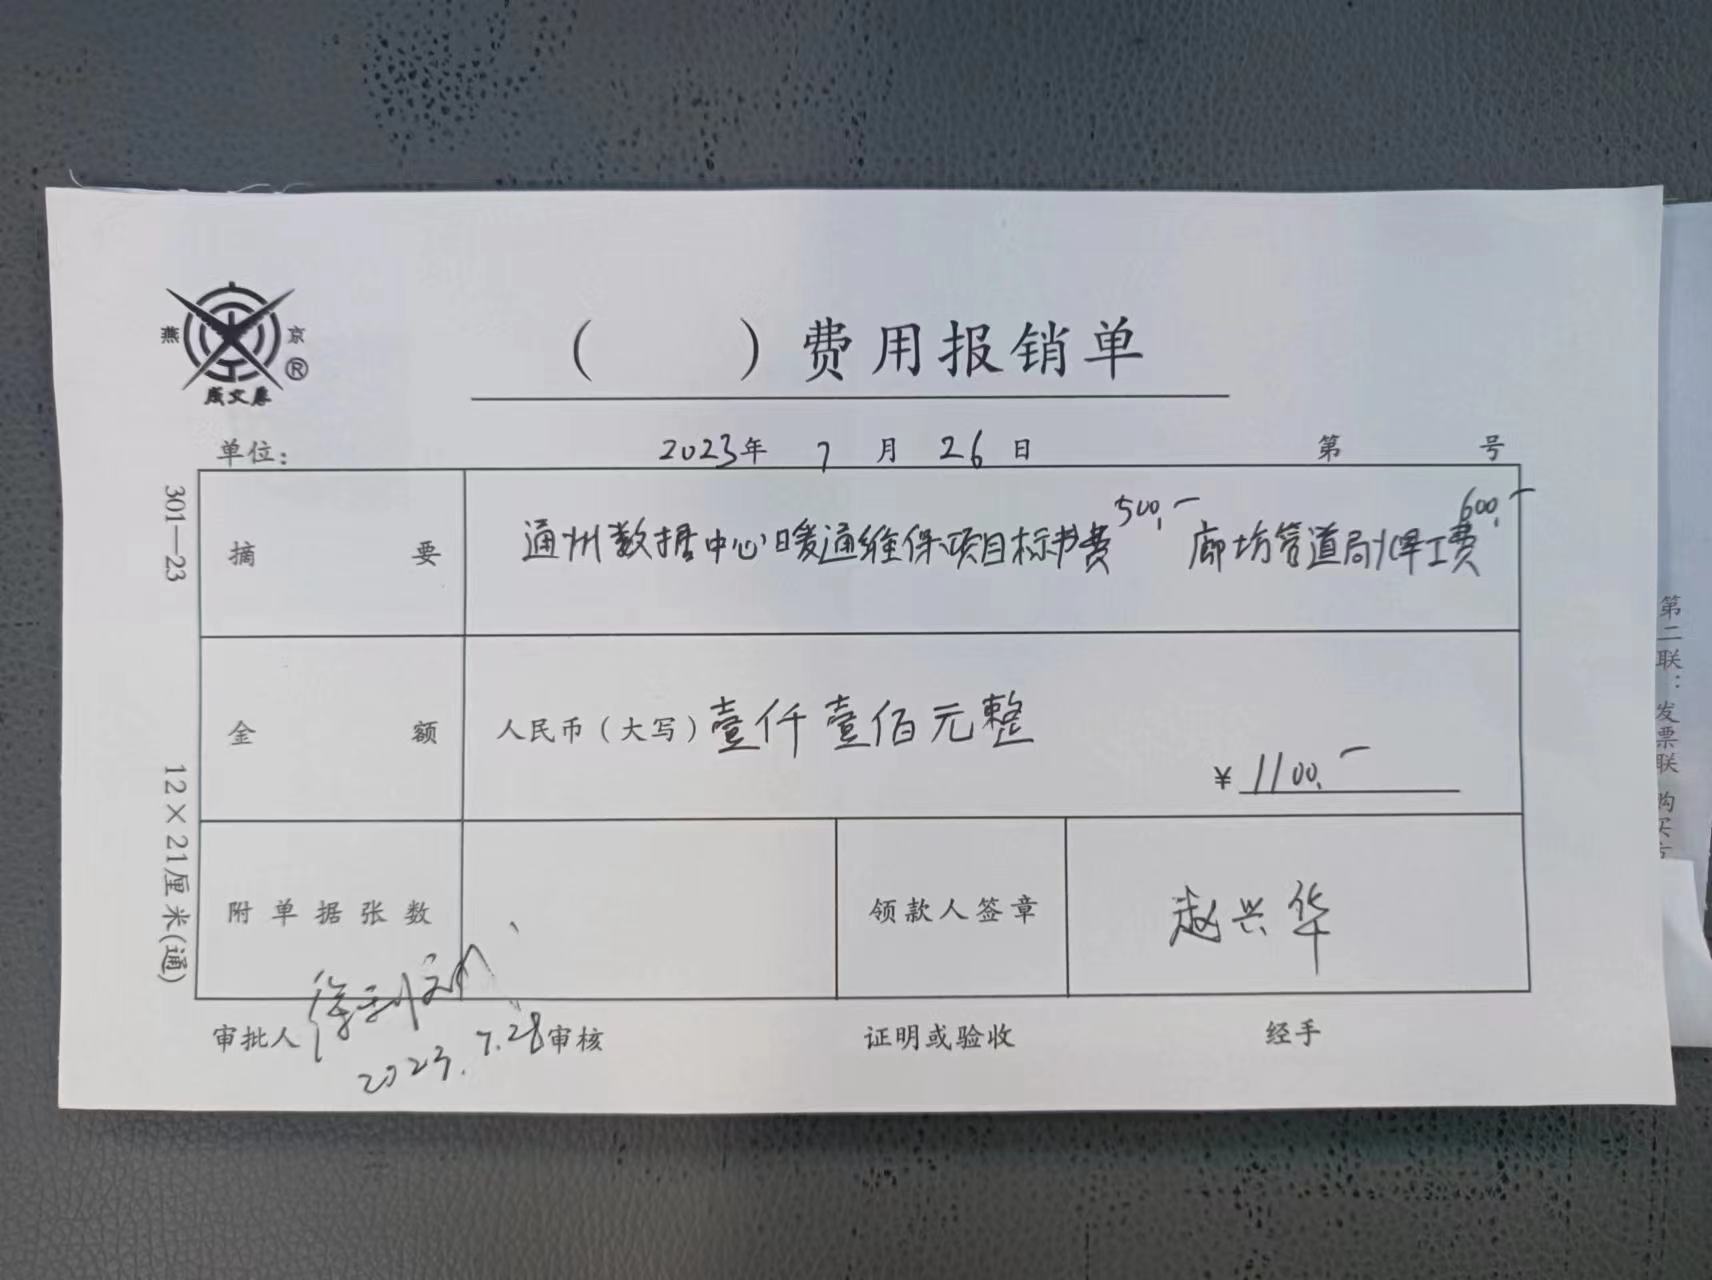 燕 京
®
成文厚
( ) 费用报销单
单位: 2023年 7 月 26 日 第 号
301—23
12×21厘米(通)
摘 要 通州数据中心暖通维保项目标书费 500.- 廊坊管道局焊工费 600.-
金 额 人民币(大写)壹仟壹佰元整
¥ 1100.-
附单据张数 领款人签章 赵兴华
审批人 审核 证明或验收 经手
2023.7.28
第二联:发票联 购买方